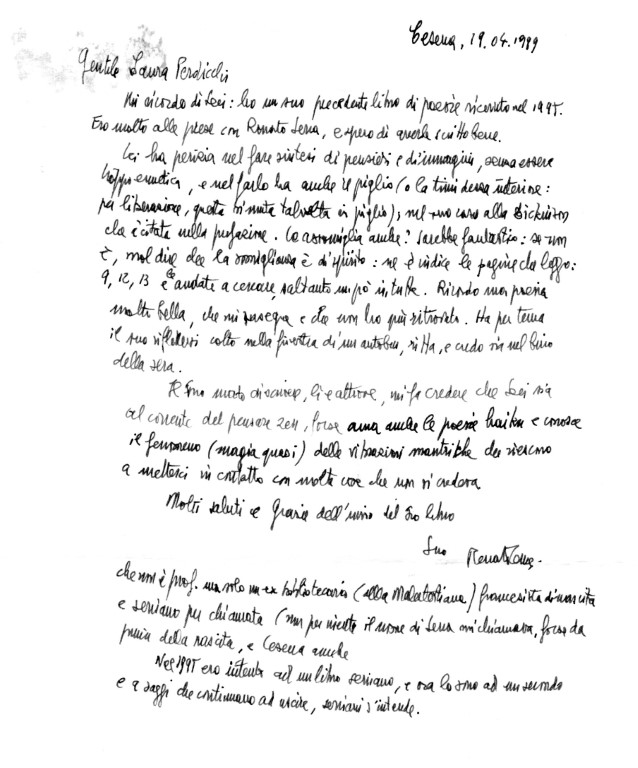 Cesena, 19.04.1999
Gentile Laura Perdicchi
Mi ricordo di Lei: ho un suo precedente libro di poesie ricevuto nel 1995.
Ero molto alle prese con Renato Serra, e spero di averle scritto bene.
Lei ha perizia nel fare sintesi di pensieri e d'immagini, senza essere
troppo ermetica, e nel farlo ha anche il piglio (o la timidezza interiore:
per liberazione, questa si muta talvolta in piglio); nel suo caso alla Dickinson
che è citata nella prefazione. Le assomiglia anche? Sarebbe fantastico: se non
è, vuol dire che la somiglianza è di spirito: ne è indice le pagine che leggo:
9, 12, 13 e andate a cercare, saltando un po' in tutte. Ricordo una poesia
molto bella, che mi insegna e che non ho più ritrovato. Ha per tema
il suo riflettersi colto nella finestra di un autobus, si Ha, e credo sia nel buio
della sera.
Il Suo modo di scrivere, lì e altrove, mi fa credere che Lei sia
al corrente del pensare zen, forse ama anche le poesie haiku e conosce
il fenomeno (magia quasi) delle vibrazioni mantriche che riescono
a metterci in contatto con molte cose che non si credeva
Molti saluti e Grazie dell'invio del Suo libro
Suo
che non è prof. ma solo un ex bibliotecario (alla Malatestiana) francesista di nascita
e serriano per chiamata (non per niente il nome di Serra mi chiamava, forse da
prima della nascita, e Cesena anche
Nel 1995 ero intento ad un libro serriano, e ora lo sono ad un secondo
e a saggi che continuano ad uscire, serriani s'intende.